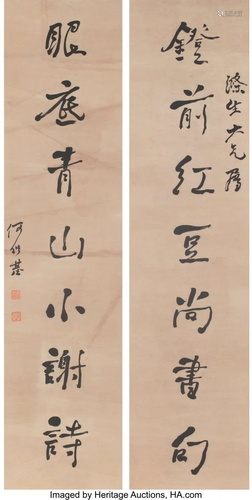 滌生大兄屬
鐙前紅豆尚書句
眼底青山小謝詩
何紹基
Imaged by Heritage Auctions, HA.com